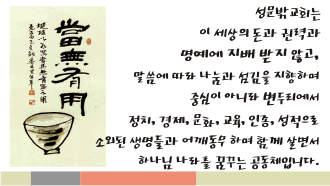 當無有用
섬문밖교회는
이 세상의 돈과 권력과
명예에 지배 받지 않고,
말씀에 따라 나눔과 섬김을 지향하며
중심이 아니라 변두리에서
정치, 경제, 문화, 교육, 인종, 성적으로
소외된 생명들과 어깨동무 하며 함께 살면서
하나님 나라를 꿈꾸는 공동체입니다.